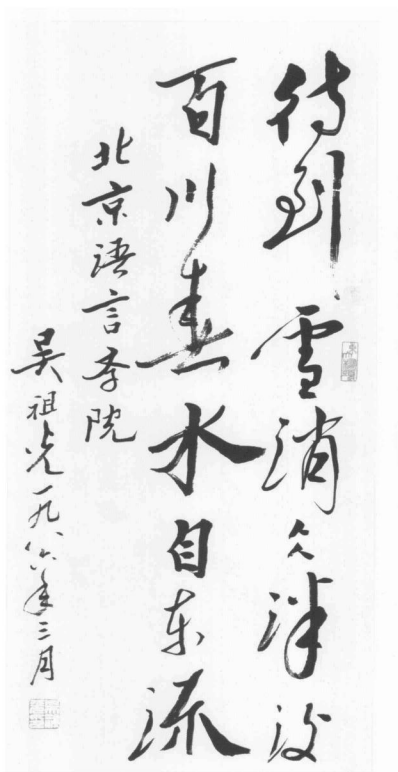 待到雪消仌泮後
百川春水自东流
北京语言学院
吴祖光一九八六年三月